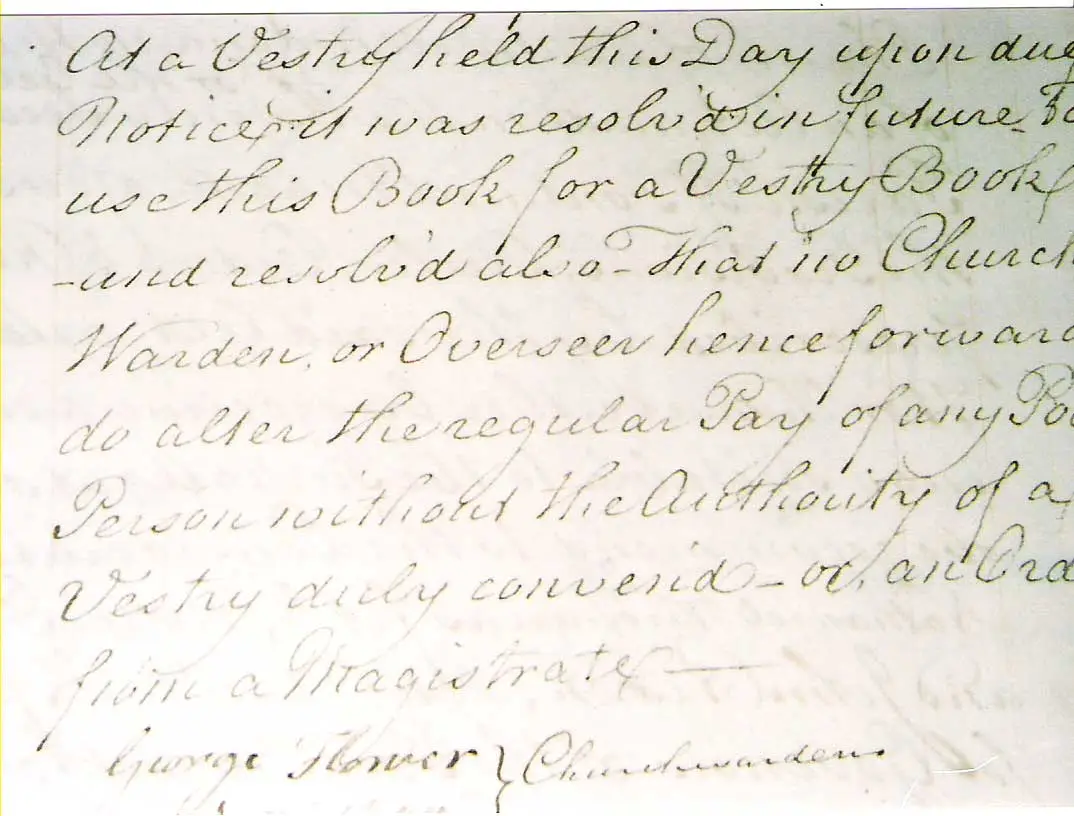 At a Vestry held this Day upon due
Notice, it was resolv'd in future To
use this Book for a Vestry Book,
-and resolv'd also - That no Church
Warden, or Overseer hence forward
do alter the regular Pay of any Poo
Person without the Authority of a
Vestry duly conven'd - or, an Ord
from a Magistrate —
George Flower } Churchwardens